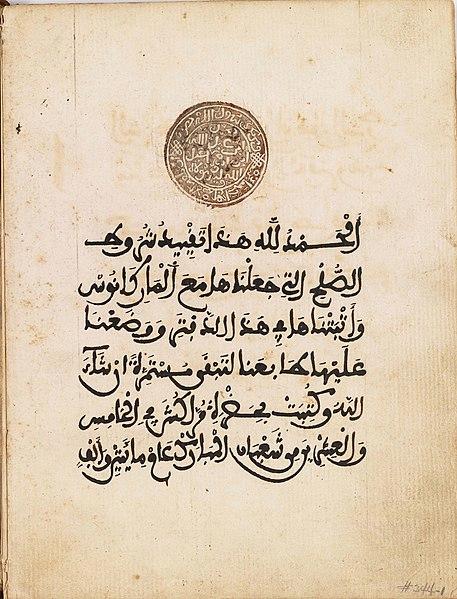 الحمد لله هذا تقييد شروط
الصلح التي جعلناها مع المار كانوس
وأثبتناها في هذا الدفتر ووضعنا
عليها طابعنا لتبقى مستمرة إن شاء
الله وكتبت بحضرة مراكش في الخامس
والعشرين من شعبان المبارك عام مايتين وألف
#244-1